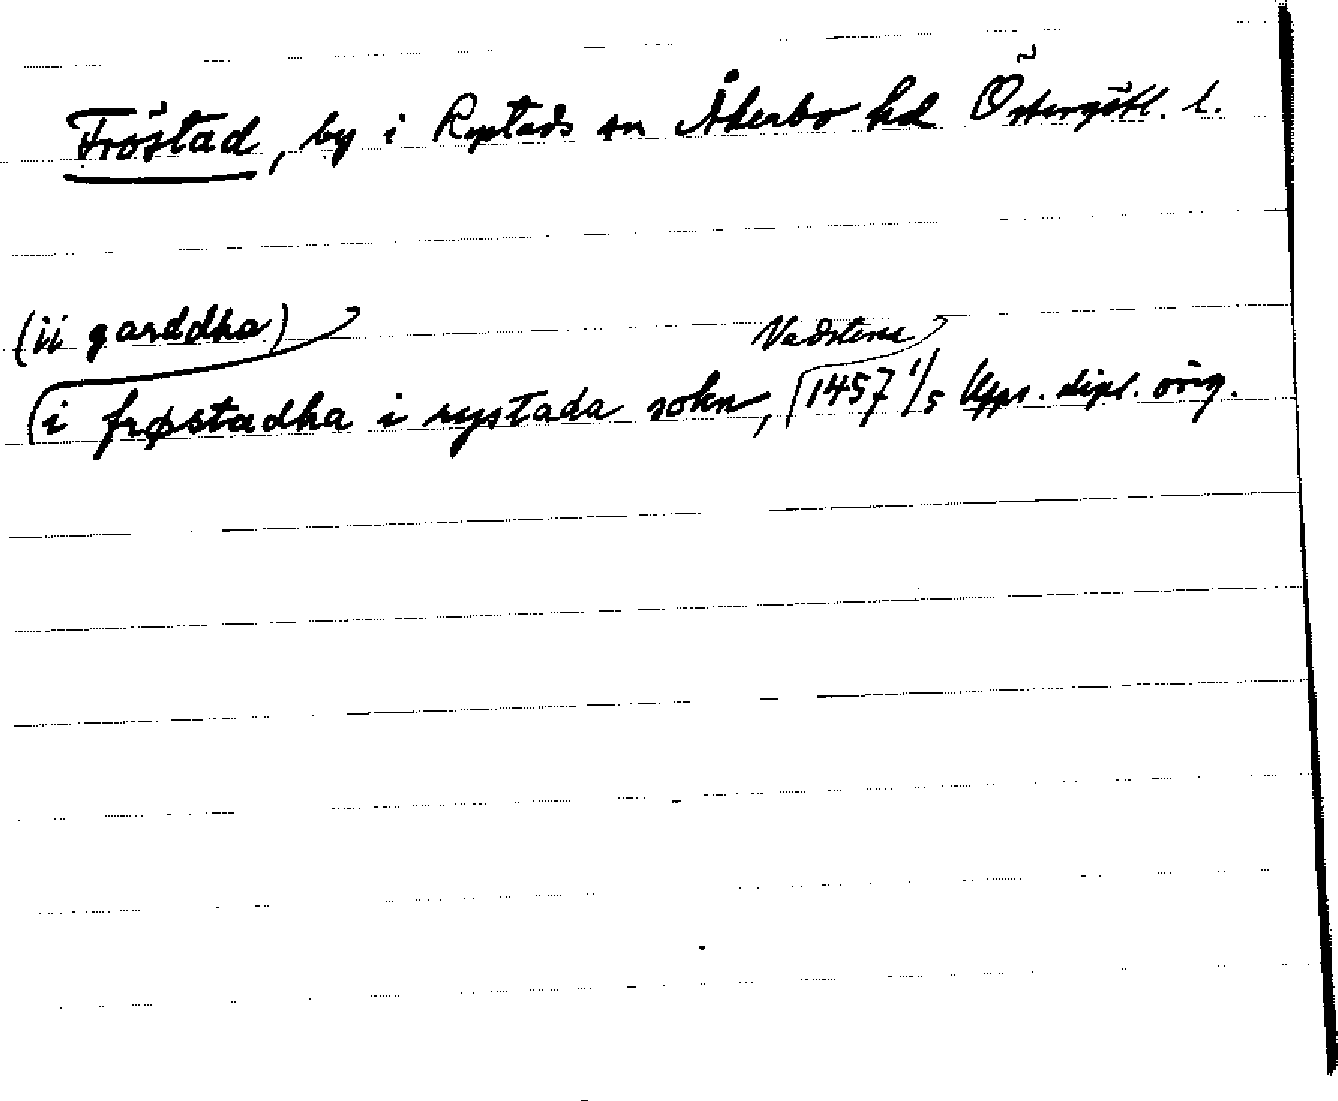 Fröstad, by i Rystads sn Åkerbo hd Östergötl. l.
(ii garddha) Vadstena
i frøstadha i rystada sokn, 1457 1/5 Upps. dipl. orig.